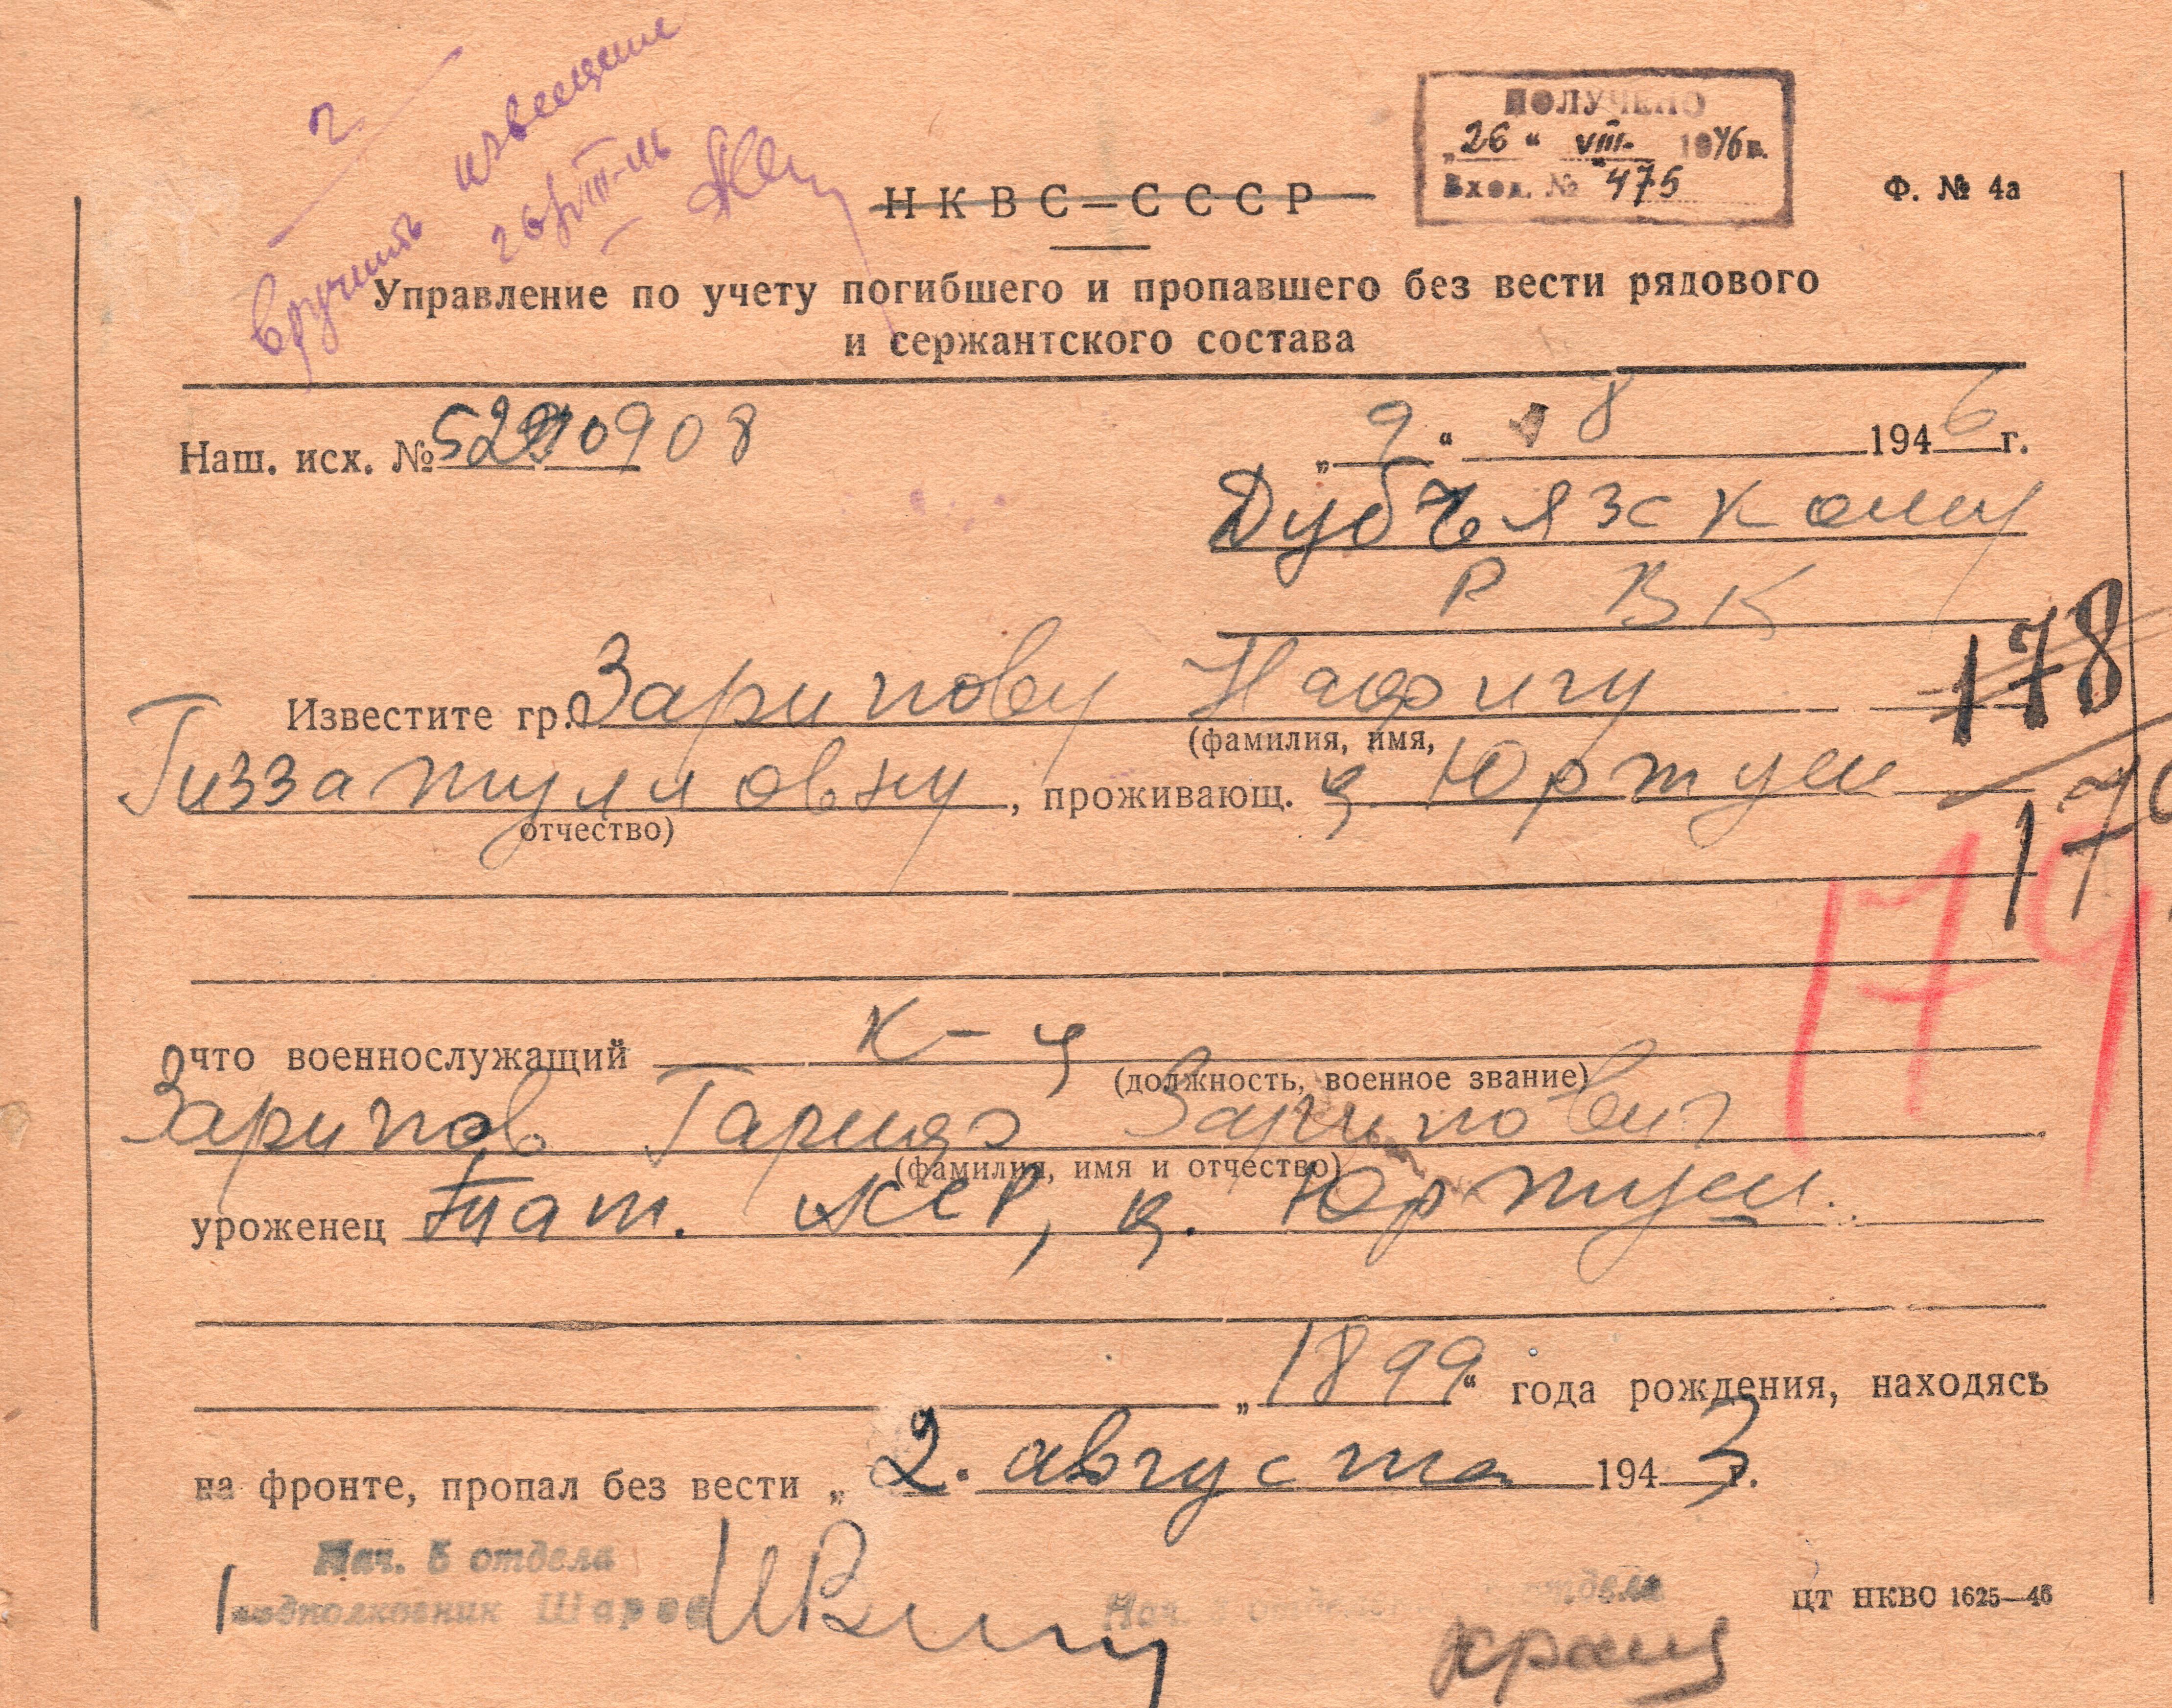 2
вручить извещение
26/VIII-
ПОЛУЧЕНО
„26“ VIII- 1946 г.
Вход. № 475
НКВС—СССР
Ф. № 4а
Управление по учету погибшего и пропавшего без вести рядового
и сержантского состава
Наш. исх. № 908
„9“ 8 1946 г.
Дубъязскому
РВК
Известите гр. Зарипову Нафигу
178
(фамилия, имя,
Гиззатулловну, проживающ. д. Юртуш
отчество)
179
179
что военнослужащий к-ц
(должность, военное звание)
Зарипов Гарифз Зарипович
(фамилия, имя и отчество)
уроженец Тат. АССР, д. Юртуш.
„1899“ года рождения, находясь
на фронте, пропал без вести „2. августа 1943 г.
Нач. 5 отдела
подполковник Шаров
Нач. отдела
ЦТ НКВО 1625—46